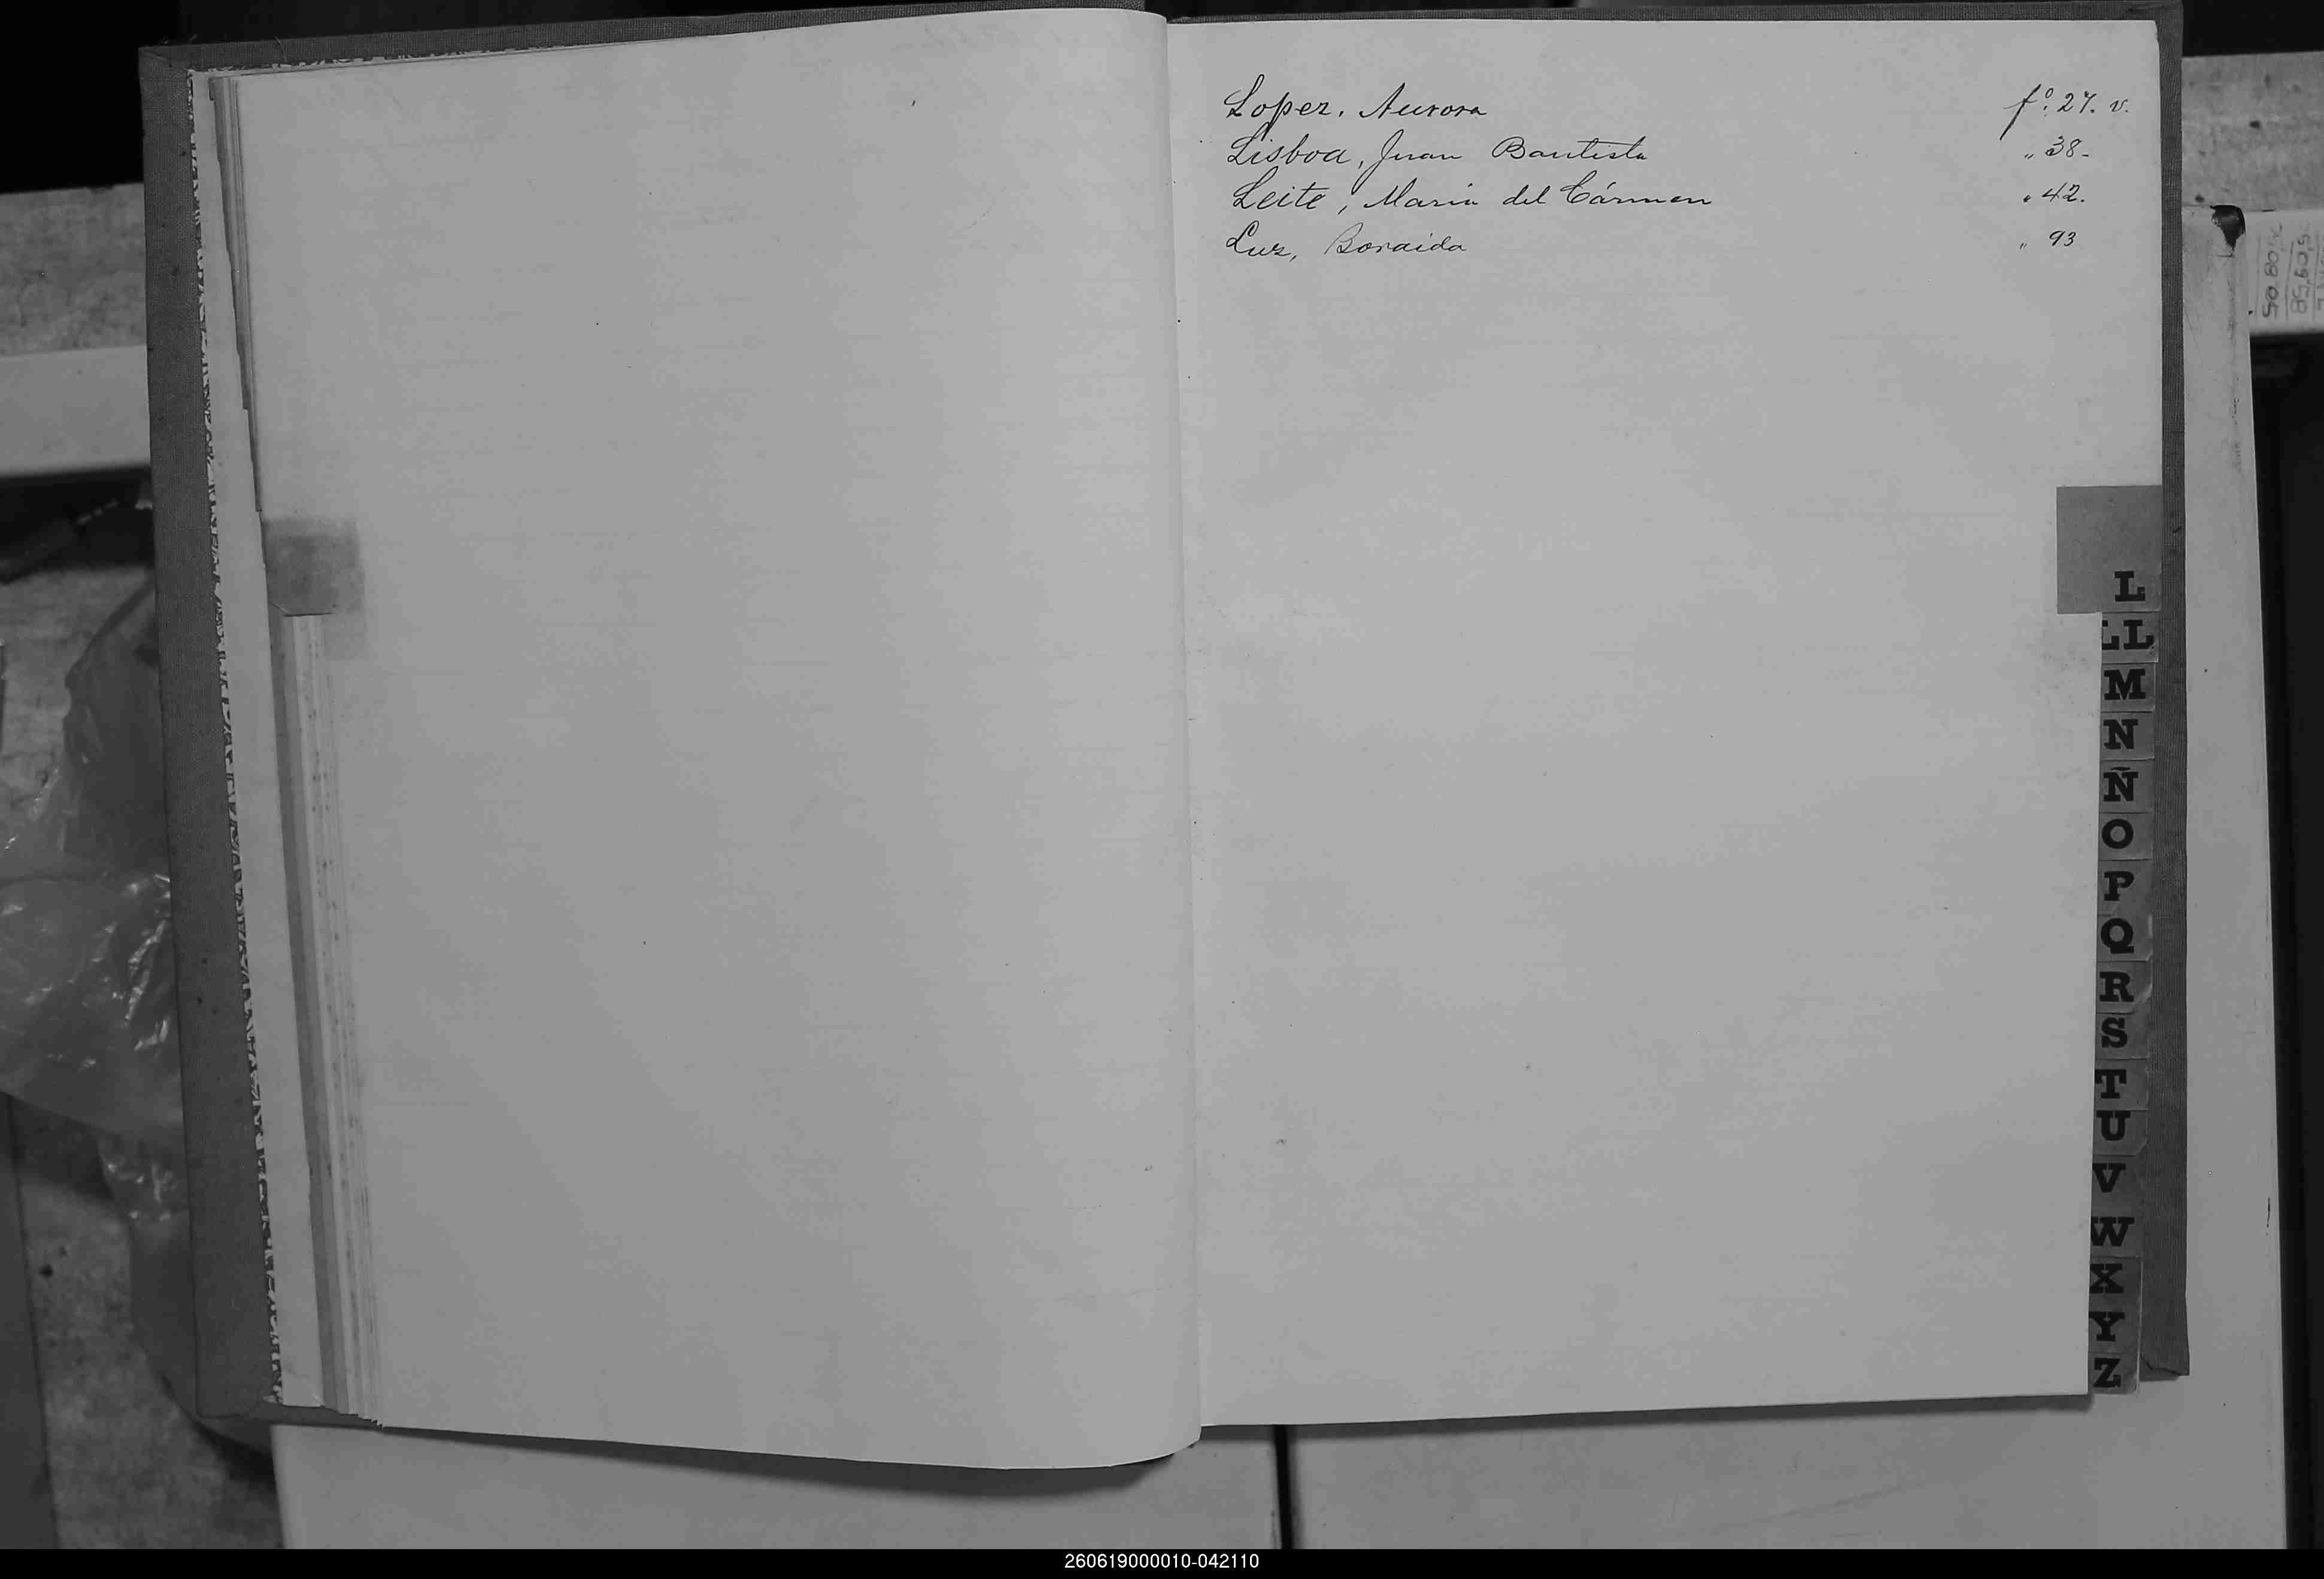 Lopez, Aurora fº. 27. v.
Lisboa, Juan Bautista " 38-
Leite, María del Cármen " 42.
Luz, Boraida " 93
L
LL
M
N
Ñ
O
P
Q
R
S
T
U
V
W
X
Y
Z
260619000010-042110